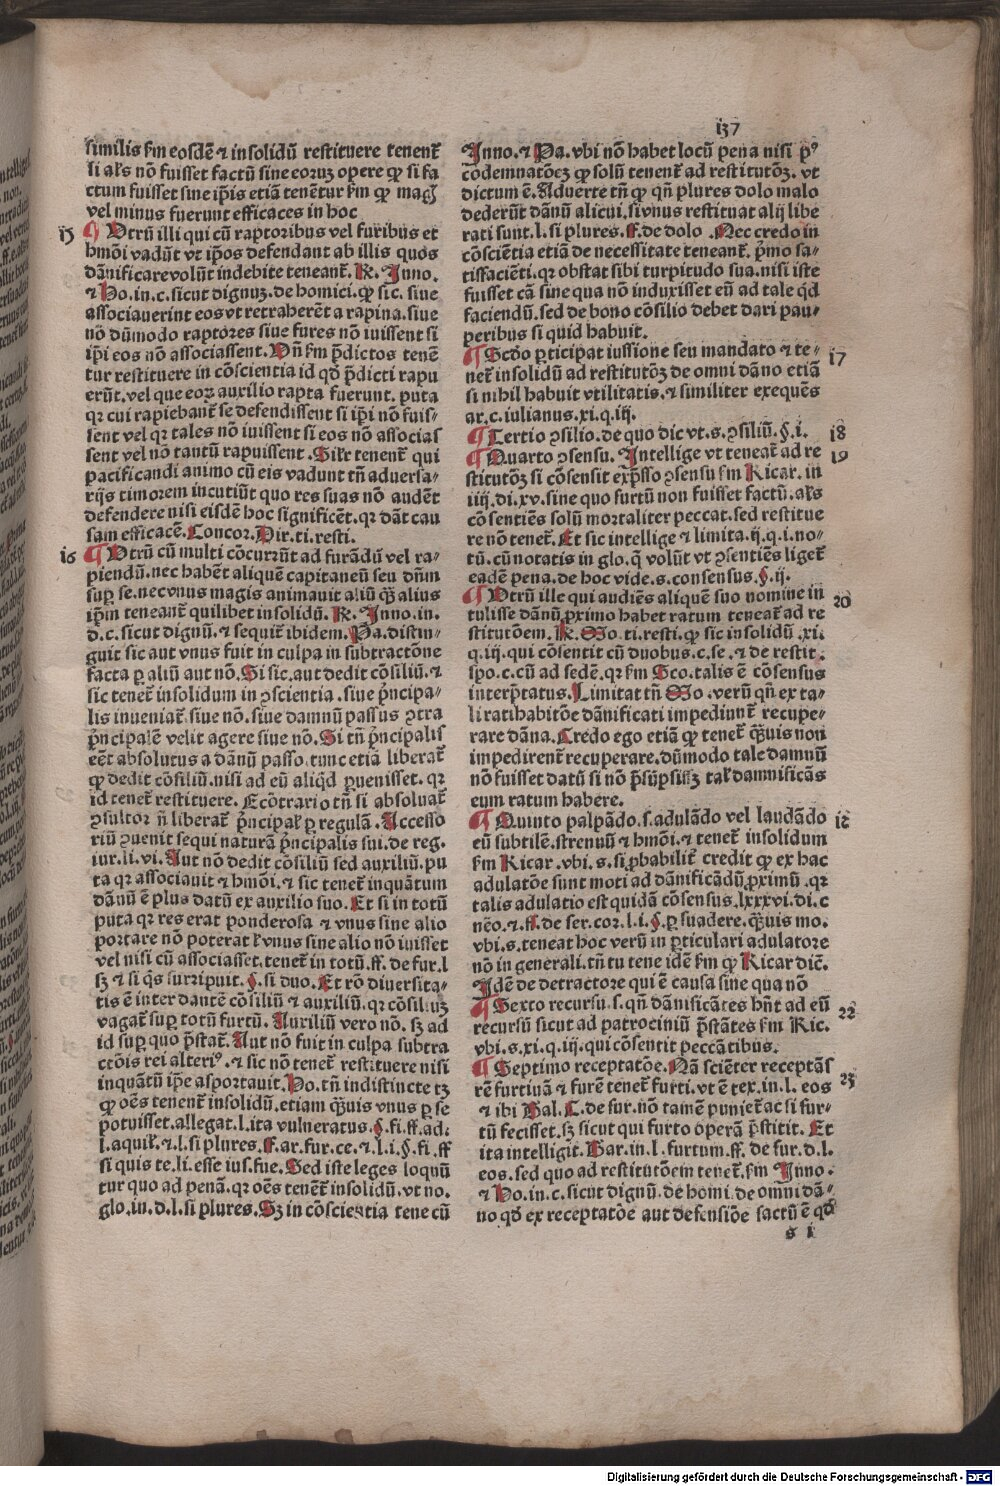 137
similis ẜm eosdē ⁊ in solidū restituere tenent̄
li al̄s nō fuisset factū sine eoruꝫ opere ꝙ si fa
ctum fuisset sine ip̄is etiā tenēt̄ur ẜm ꝙ maḡ
vel minus fuerunt efficaces in hoc
15 ¶ Vtrū illi qui cū raptoribus vel furibus et
hmōi vadūt vt ip̄os defendant ab illis quos
dānificare volūt indebite teneant̄. R̄. Inno.
⁊ Ho. in. c. sicut dignuꝫ. de homici. ꝙ sic. siue
associauerint eos vt retraherēt a rapina. siue
nō dūmodo raptores siue fures nō iuissent si
ip̄i eos nō associassent. Vn̄ ẜm p̄dictos tenē
tur restituere in cōscientia id qd̄ p̄dicti rapu
erūt. vel que eoꝝ auxilio rapta fuerunt. puta
qꝛ cui rapiebant̄ se defendissent si ip̄i nō fuis-
sent vel qꝛ tales nō iuissent si eos nō associas
sent vel nō tantū rapuissent. Sil̄r tenent̄ qui
pacificandi animo cū eis vadunt tn̄ aduersa-
rijs timorem incutiūt quo res suas nō audēt
defendere nisi eisdē hoc significēt. qꝛ dāt cau
sam efficacē. Concor. Pir. ti. resti.
16 ¶ Vtrū cū multi cōcurrūt ad furādū vel ra-
piendū. nec habēt aliquē capitaneū seu dn̄m
suꝑ se. nec vnus magis animauit aliū qꝫ alius
ip̄m teneant̄ quilibet in solidū. R̄. Inno. in.
d. c. sicut dignū. ⁊ sequit̄ ibidem. Pa. distin-
guit sic aut vnus fuit in culpa in subtractōne
facta ꝑ aliū aut nō. Si sic. aut dedit cōsiliū. ⁊
sic tenet̄ in solidum in ꝯscientia. siue p̄ncipa-
lis inueniat̄. siue nō. siue damnū passus ꝯtra
p̄ncipalē velit agere siue nō. Si tn̄ p̄ncipalis
eēt absolutus a dānū passo. tunc etiā liberat̄
ꝙ dedit cōsiliū. nisi ad eū aliqd̄ ꝑuenisset. qꝛ
id tenet̄ restituere. Ecōtrario tn̄ si absoluat̄
ꝯsultor n̄ liberat̄ p̄ncipal̄ ꝑ regulā. Accesso
riū ꝯuenit sequi naturā p̄ncipalis sui. de reg.
iur. li. vi. Aut nō dedit cōsiliū sed auxiliū. pu
ta qꝛ associauit ⁊ hmōi. ⁊ sic tenet̄ inquātum
dānū ē plus datū ex auxilio suo. Et si in totū
puta qꝛ res erat ponderosa ⁊ vnus sine alio
portare nō poterat l̄ vnus sine alio nō iuisset
vel nisi cū associasset. tenet̄ in totū. ff. de fur. l
sꝫ ⁊ si q̄s surripuit. §. si duo. Et rō diuersita-
tis ē inter dantē cōsiliū ⁊ auxiliū. qꝛ cōsiliuꝫ
vagat̄ suꝑ totū furtū. Auxiliū vero nō. sꝫ ad
id suꝑ quo p̄stat̄. Aut nō fuit in culpa subtra
ctōis rei alteriꝰ. ⁊ sic nō tenet̄ restituere nisi
inquātū ip̄e asportauit. Ho. tn̄ indistincte tꝫ
ꝙ oēs tenent̄ in solidū. etiam qꝫuis vnus ꝑ se
potuisset. allegat. l. ita vulneratus. §. fi. ff. ad.
l. aquil̄. ⁊. l. si plures. ff. ar. fur. ce. ⁊. l. i. §. fi. ff
si quis te. li. esse ius. fue. Sed iste leges loquū
tur quo ad penā. qꝛ oēs tenēt̄ in solidū. vt no.
glo. in. d. l. si plures. Sꝫ in cōscientia tene cū
Inno. ⁊ Pa. vbi nō habet locū pena nisi pꝰ
cōdemnatōeꝫ ꝙ solū tenent̄ ad restitutōꝫ. vt
dictum ē. Aduerte tn̄ ꝙ qn̄ plures dolo malo
dederūt dānū alicui. si vnus restituat alij libe
rati sunt. l. si plures. ff. de dolo. Nec credo in
cōscientia etiā de necessitate teneant̄. p̄mo sa-
tisfaciēti. qꝛ obstat sibi turpitudo sua. nisi iste
fuisset cā sine qua nō induxisset eū ad tale qd̄
faciendū. sed de bono cōsilio debet dari pau-
peribus si quid habuit.
17 ¶ Scd̄o ꝑticipat iussione seu mandato ⁊ te-
net̄ in solidū ad restitutōꝫ de omni dāno etiā
si nihil habuit vtilitatis. ⁊ similiter exequēs
ar. c. iulianus. xi. q. iij.
18 ¶ Tertio ꝯsilio. de quo dic vt. s. ꝯsiliū. §. i.
19 ¶ Quarto ꝯsensu. Intellige vt teneat̄ ad re
stitutōꝫ si cōsensit exp̄sso ꝯsensu ẜm Ricar. in
iiij. di. xv. sine quo furtū non fuisset factū. al̄s
cōsentiēs solū mortaliter peccat. sed restitue
re nō tenet̄. Et sic intellige ⁊ limita. ij. q. i. no-
tū. cū notatis in glo. q̄ volūt vt ꝯsentiēs liget̄
eadē pena. de hoc vide. s. consensus. §. ij.
20 ¶ Vtrū ille qui audiēs aliquē suo nomine in
tulisse dānū ꝓximo habet ratum teneat̄ ad re
stitutōem. R̄. Mo. ti. resti. ꝙ sic in solidū. xi.
q. iij. qui cōsentit cū duobus. c. se. ⁊ de restit.
spo. c. cū ad sedē. qꝛ ẜm Sco. talis ē cōsensus
interp̄tatus. Limitat tn̄ Mo. verū qn̄ ex ta-
li ratihabitōe dānificati impediunt̄ recupe-
rare dāna. Credo ego etiā ꝙ tenet̄ qꝫuis non
impedirent̄ recuperare. dūmodo tale damnū
nō fuisset datū si nō p̄sūpsissꝫ tal̄ damnificās
eum ratum habere.
12 ¶ Quinto palpādo. s. adulādo vel laudādo
eū subtilē. strenuū ⁊ hmōi. ⁊ tenet̄ in solidum
ẜm Ricar. vbi. s. si ꝓbabilit̄ credit ꝙ ex hac
adulatōe sunt moti ad dānificādū ꝓximū. qꝛ
talis adulatio est quidā cōsensus. lxxxvi. di. c
nēo. ⁊. ff. de ser. cor. l. i. §. ꝑsuadere. qꝫuis mo.
vbi. s. teneat hoc verū in ꝑticulari adulatore
nō in generali. tn̄ tu tene idē ẜm ꝙ Ricar dic̄.
Idē de detractore qui ē causa sine qua nō
22 ¶ Sexto recursu. s. qn̄ dānificātes hn̄t ad eū
recursū sicut ad patrociniū p̄stātes ẜm Ric.
vbi. s. xi. q. iij. qui cōsentit peccātibus.
23 ¶ Septimo receptatōe. Nā sciēter receptās
rē furtiuā ⁊ furē tenet̄ furti. vt ē tex. in. l. eos
⁊ ibi Bal. C. de fur. nō tamē puniet̄ ac si fur-
tū fecisset. sꝫ sicut qui furto operā p̄stitit. Et
ita intelligit̄. Bar. in. l. furtum. ff. de fur. d. l.
eos. sed quo ad restitutōem tenet̄. ẜm Inno.
⁊ Ho. in. c. sicut dignū. de homi. de omni dā-
no qd̄ ex receptatōe aut defensiōe factū ē qd̄
s i
Digitalisierung gefördert durch die Deutsche Forschungsgemeinschaft - DFG